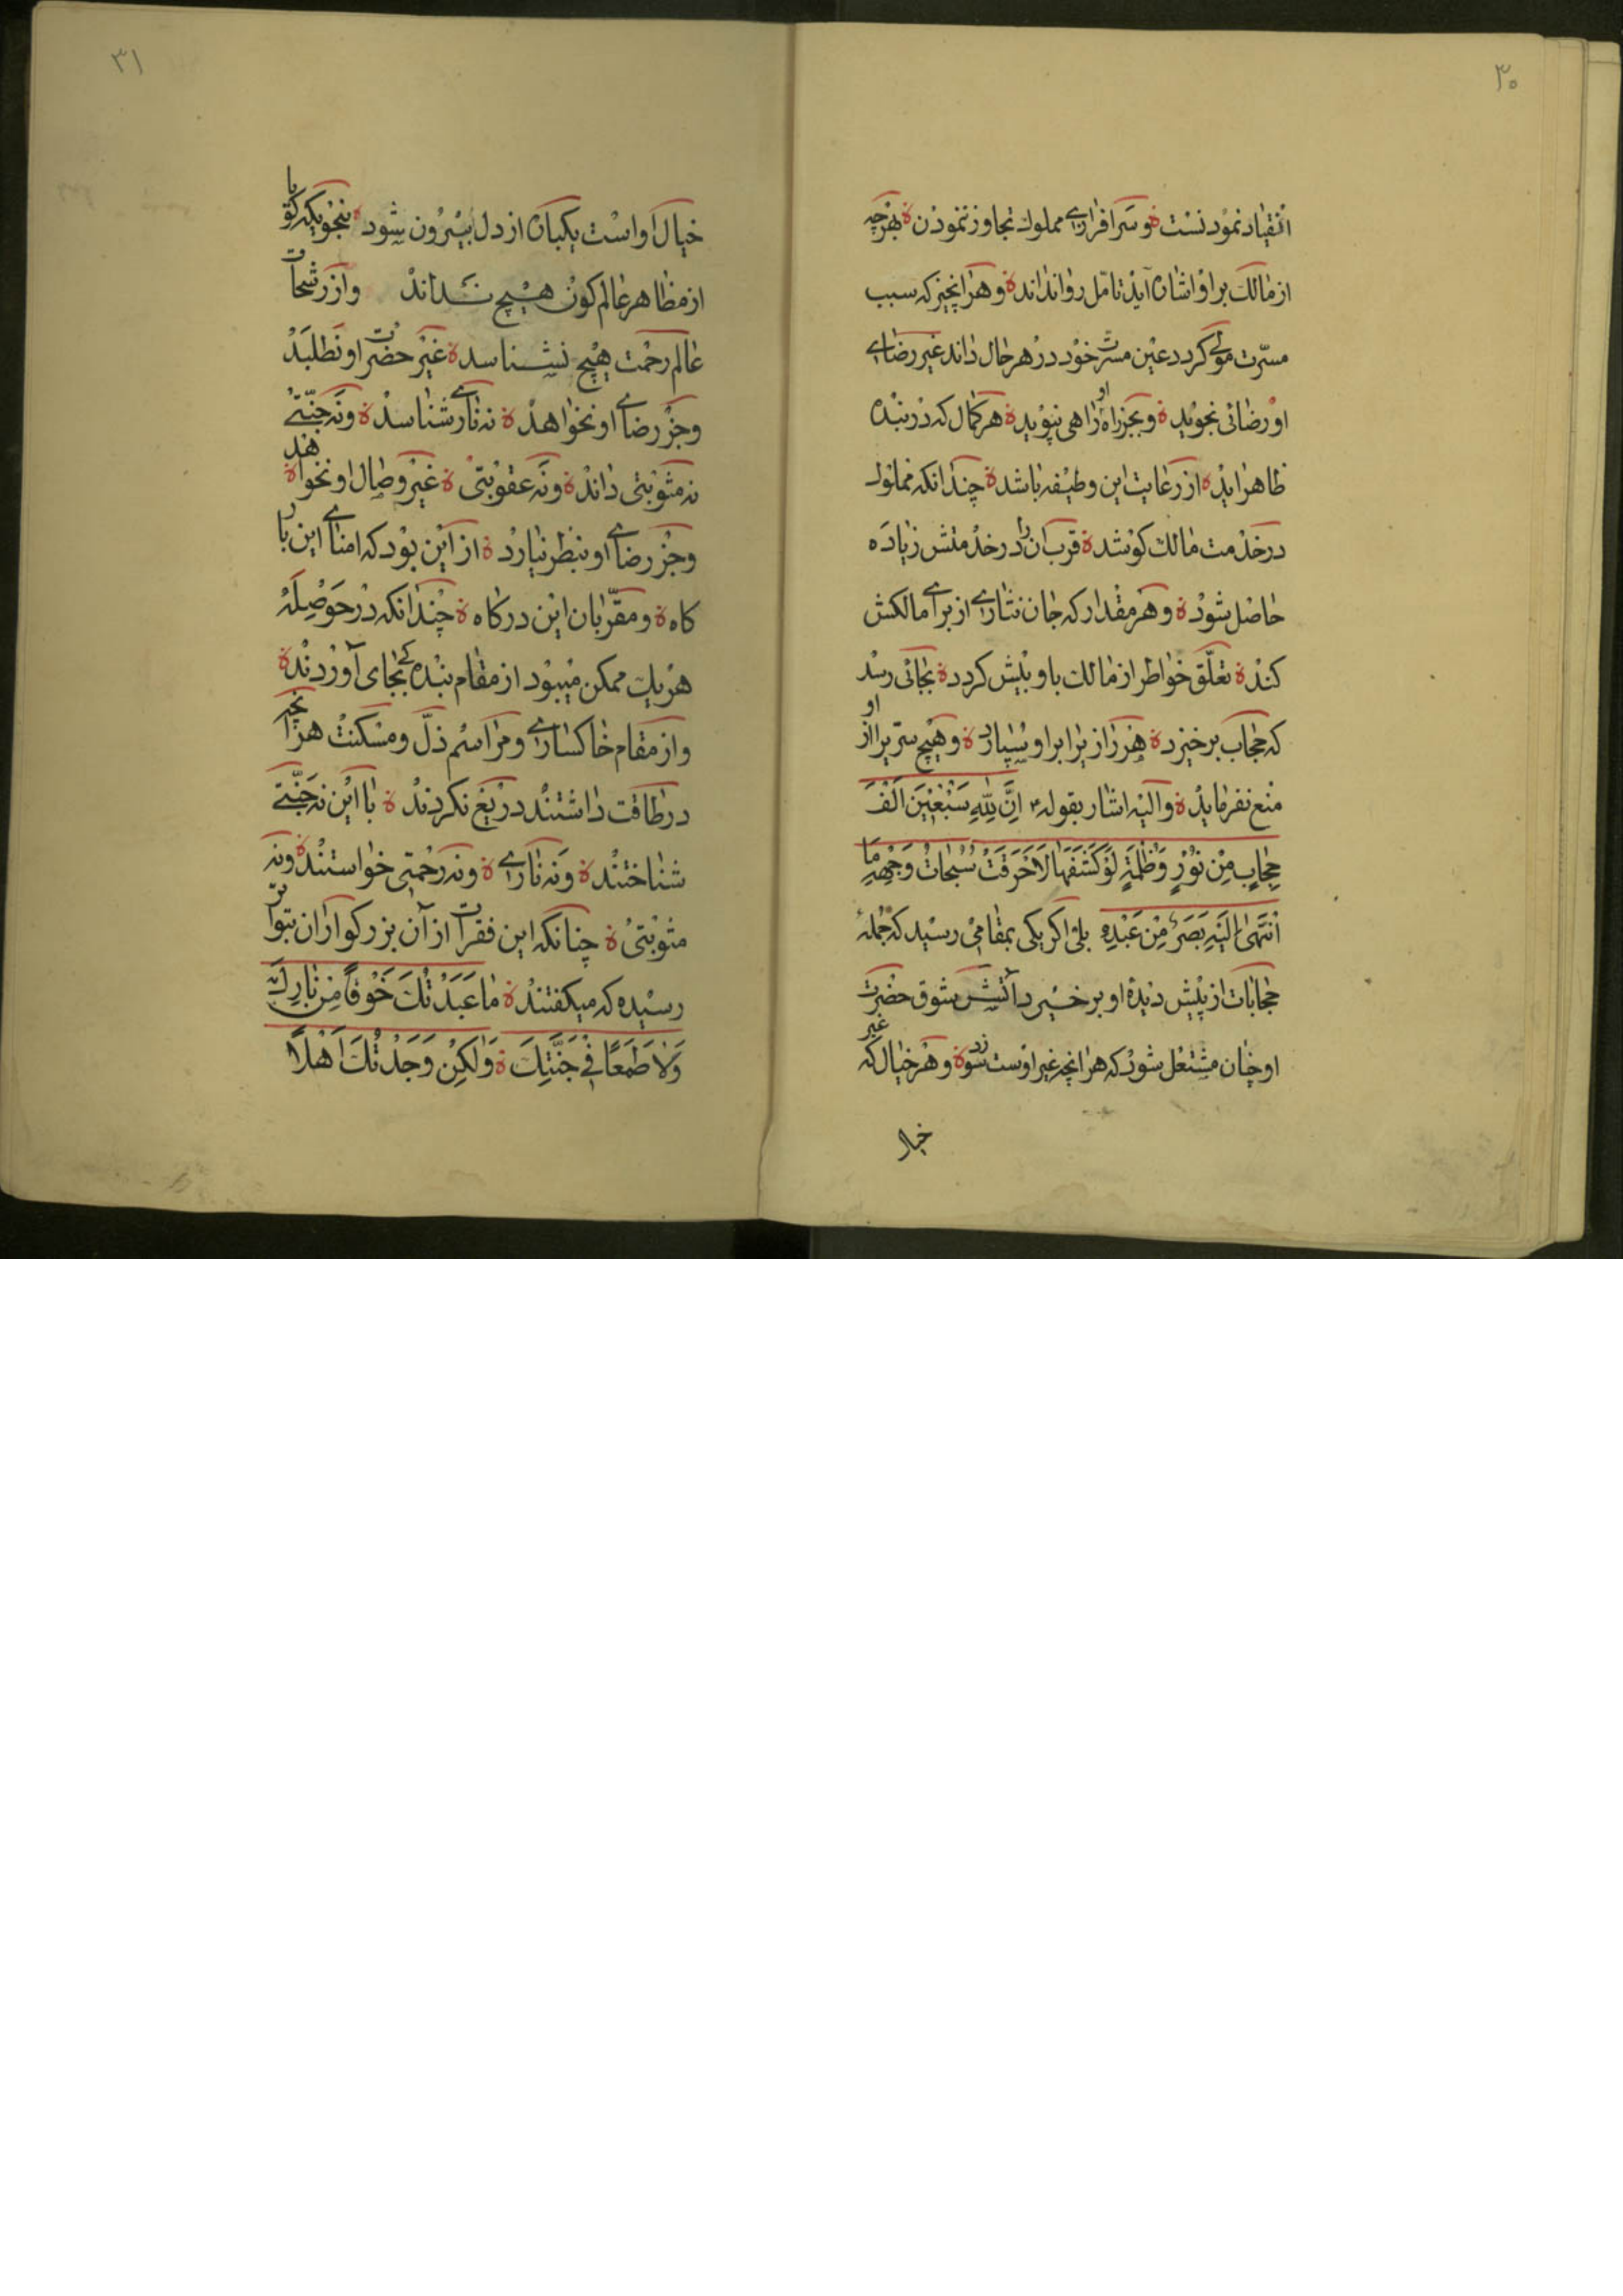 ۳۰
انقیاد نمودنست ة و سرافرازی مملوك تجاوز ننمودن ة بهرچه
از مالك بر او اشارة آید تامّل روا نداند ة و هر انچیز که سبب
مسرّت مولی گردد عین مسرّت خود در هر حال داند غیر رضای
او رضائی نجوید ة و بجز راه او راهی نپوید ة هر کمال که در بنده
ظاهر اید ة از رعایت این وظیفه باشد ة چندانکه مملوك
در خدمت مالك کوشد ة قرب ان را در خدمتش زیاده
حاصل شود ة و هر مقدار که جان نثاری از برای مالکش
کند ة تعلّق خواطر از مالك باو بیش گردد ة بجائی رسد
که حجاب برخیزد ة هر راز یرا براو بسپارد ة و هیچ سرّ یرا از او
منع نفرماید ة و الیه اشار بقوله ۴ اِنَّ لِلّٰهِ سَبْعینَ اَلْفَ
حِجابٍ مِنْ نُوْرٍ وَظُلْمَةٍ لَوْ کَشَفَهَا لَاَحْرَقَتْ سُبُحاتُ وَجْهِهِ مَا
اَنْتَهیٰ اِلَیْهِ بَصَرُ مِنْ عَبْدِهِ بلی اگر یکی بمقامی رسید که جملهٔ
حجابات از پیش دیدهٔ او برخیزد آتش شوق حضرت
او چنان مشتعل شود که هر انچه غیر اوست سوزد ة و هر خیال که غیر
خیال
۳۱
خیال او است یکباره از دل بیرون شود ة بنحویکه گویا
از مظاهر عالم کون هیچ نداند و از رشحات
عالم رحمت هیچ نشناسد ة غیر حضرت او نطلبد
و جز رضای او نخواهد ة نه ناری شناسد ة و نه جنّتی
نه مثوبتی داند ة و نه عقوبتی ة غیر وصال او نخواهد ة
و جز رضای او بنظر نیارد ة از این بود که امنای این بار
گاه ة و مقرّبان این درگاه ة چندانکه در حوصلهٔ
هر یك ممکن میبود از مقام بنده گی بجای آوردند ة
و از مقام خاکساری و مراسم ذلّ و مسکنت هر انچه
در طاقت داشتند دریغ نکردند ة با این نه جنّتی
شناختند ة و نه ناری ة و نه رحمتی خواستند ة و نه
مثوبتی ة چنانکه این فقرات از آن بزرگواران بتواتر
رسیده که میگفتند ة مٰا عَبَدْتُكَ خَوْفًا مِنْ نٰارِكَ
وَلاٰ طَمَعًا فِیْ جَنَّتِكَ ة وَلٰکِنْ وَجَدْتُكَ اَهْلًا